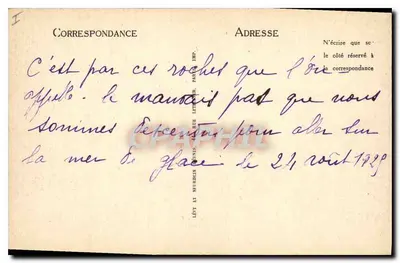 I
CORRESPONDANCE
ADRESSE
N'écrire que sur
le côté réservé à
la correspondance
C'est par ces roches que l'on
appelle - le mauvais pas que nous
sommes descendus pour aller sur
la mer de glace le 24 août 1925
LÉVY ET NEURDEIN RÉUNIS
PARIS IMP.